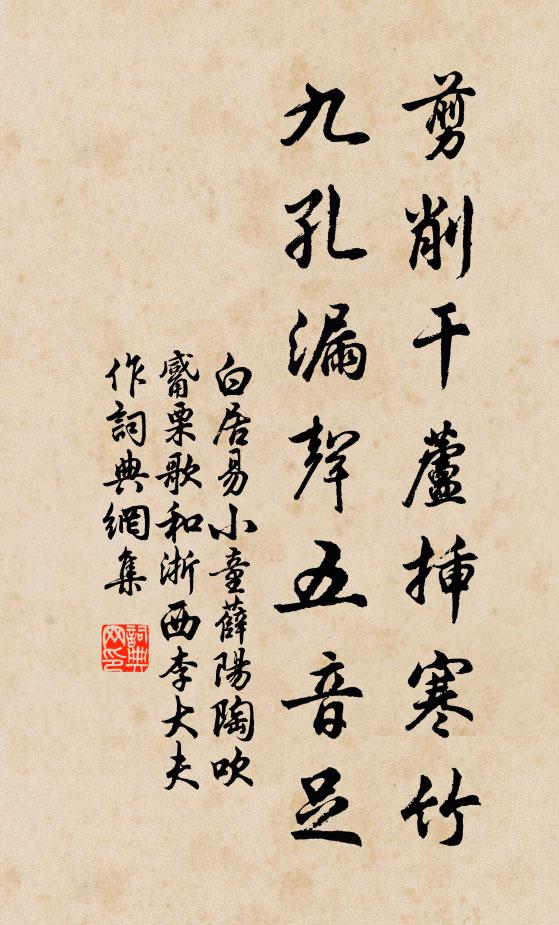 剪削干蘆揷寒竹
九孔漏聲五音足
白居易小童薛陽陶吹
觱栗歌和浙西李大夫
作詞典網集
詞典
网印